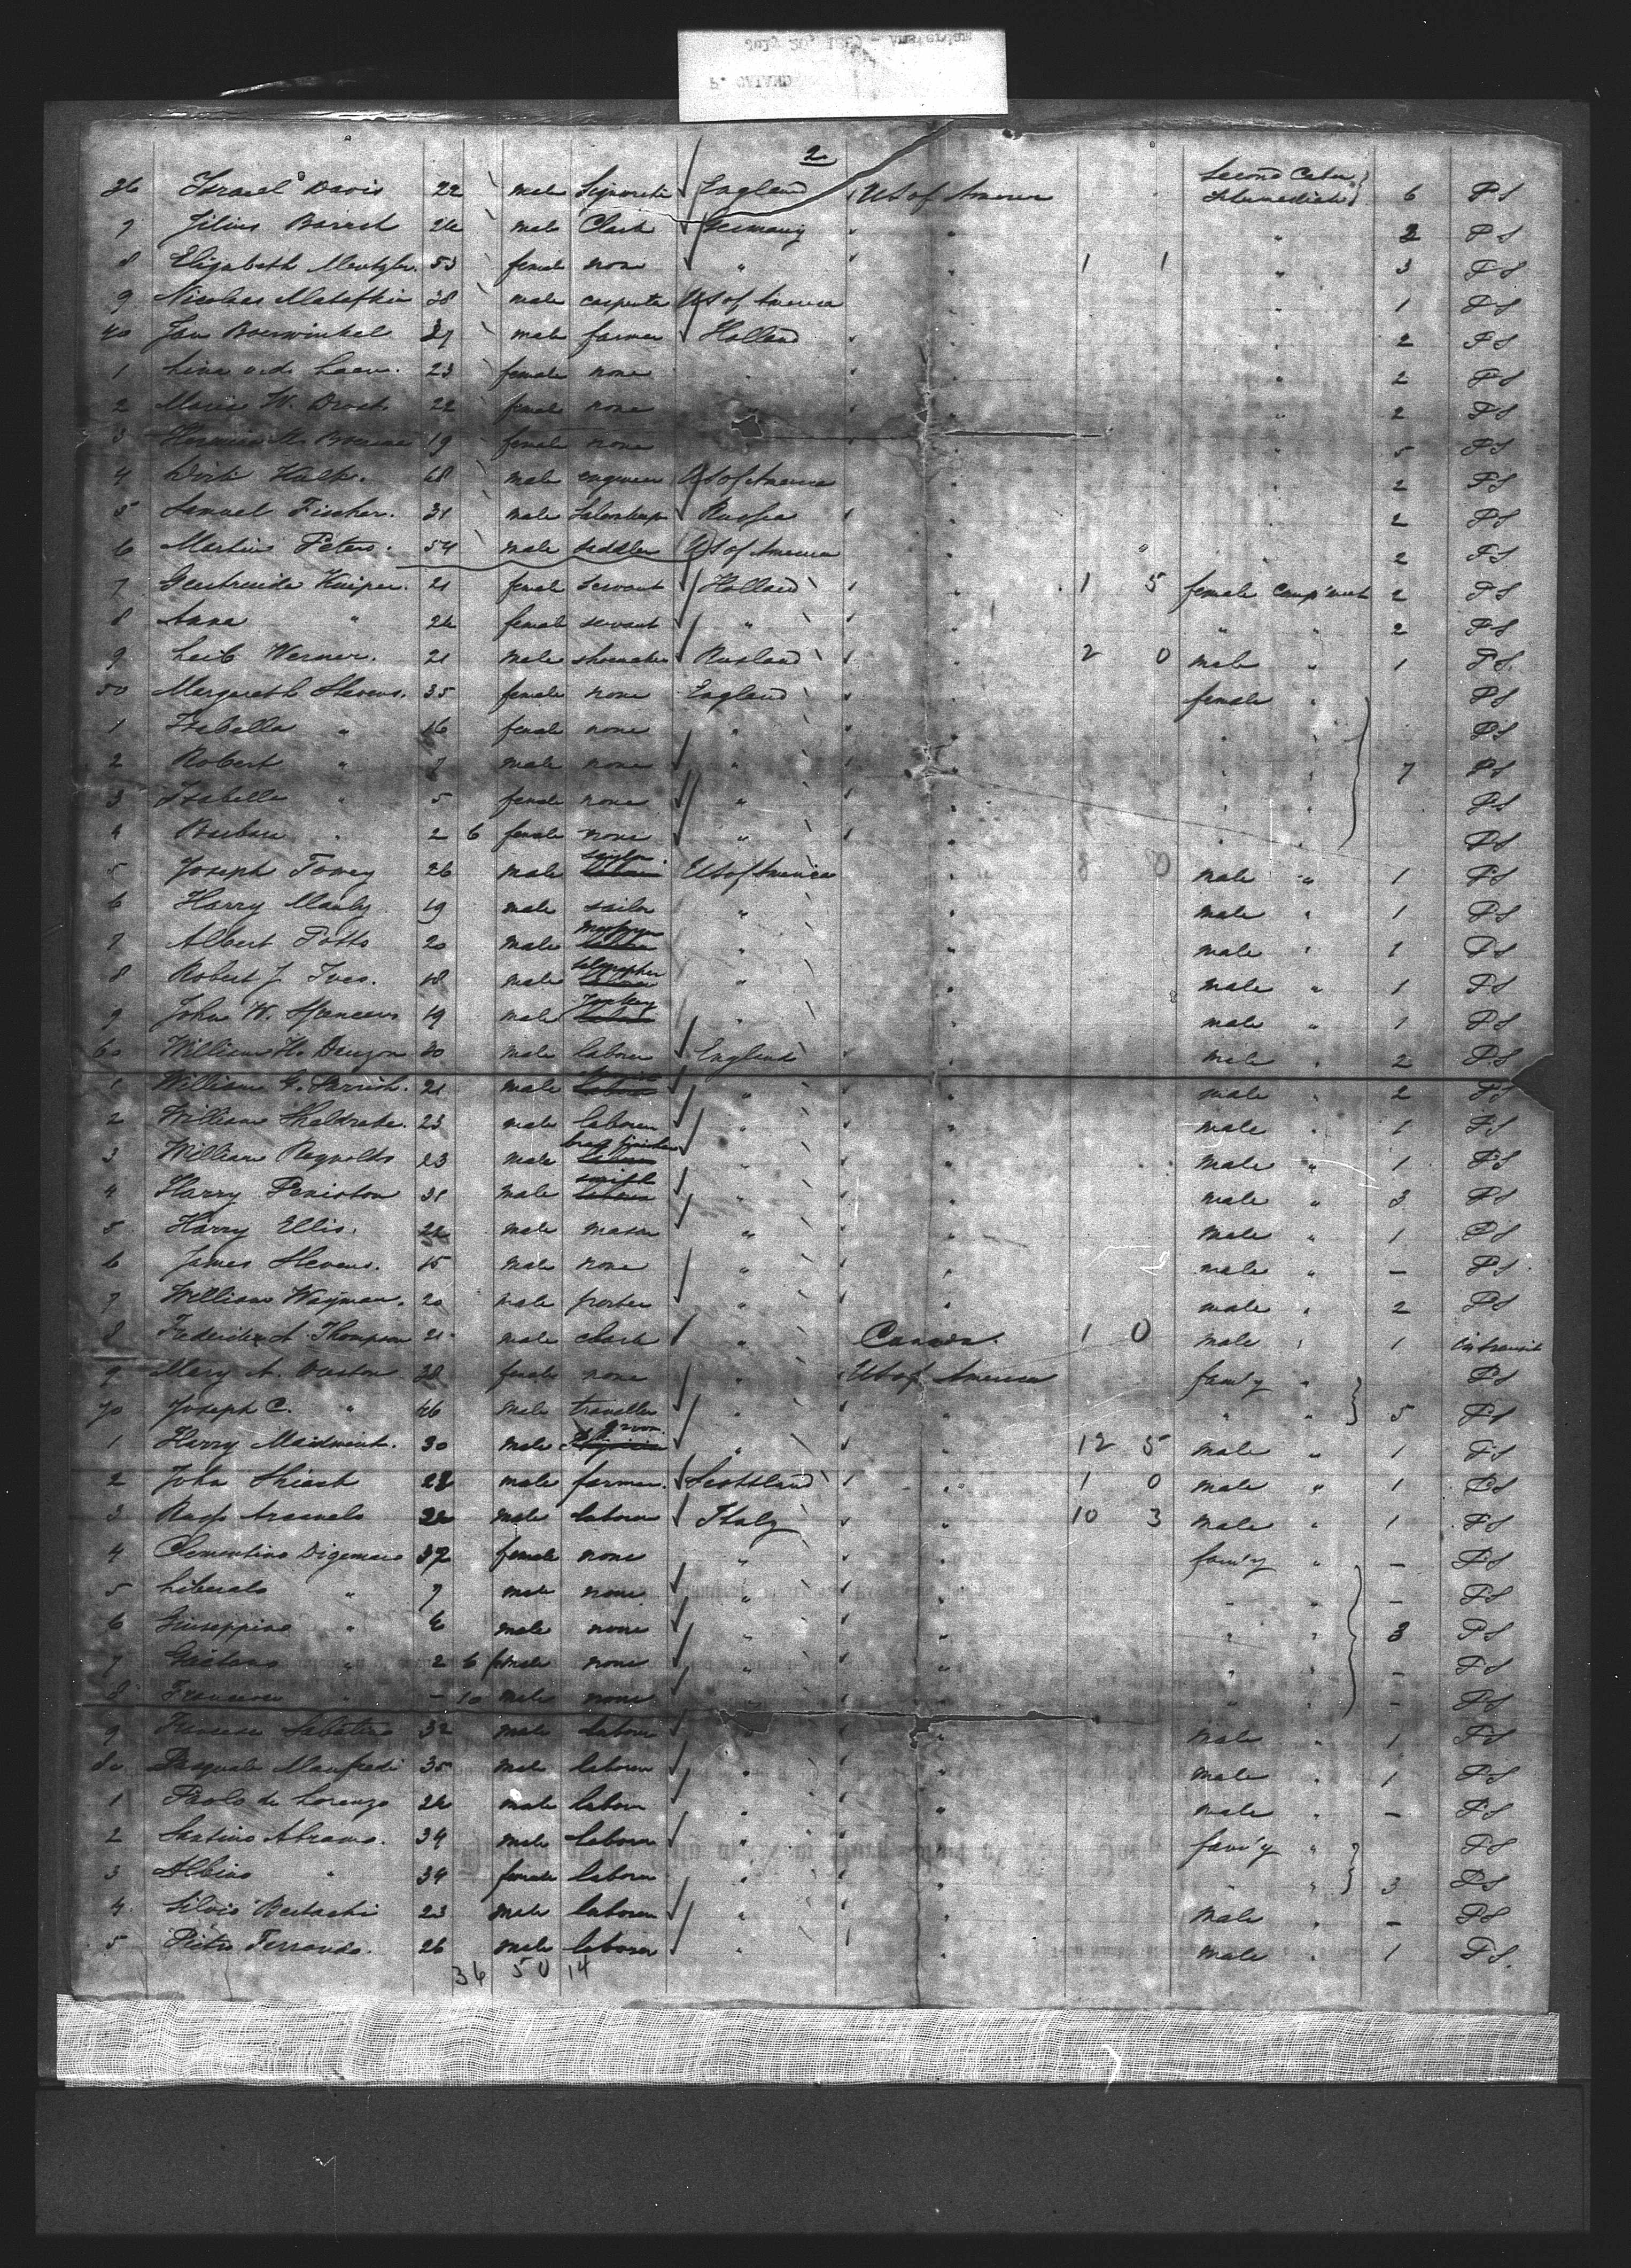 July 20, 1889 - Amsterdam
P. CALAND
2
36 Israel Davis 22 male England US of America Second Cabin Intermediate 6 PS
7 Julius 24 male Clark Germany " " " 2 PS
8 Elizabeth 53 female none " " " 1 1 " 3 PS
9 Nicolaas 38 male carpenter US of America " " 1 PS
40 Jan Boerwinkel 37 male farmer Holland " " " 2 PS
1 23 female none " " " " 2 PS
2 Maria W. Drost 22 female none " " 2 PS
3 19 female none " " 5 PS
4 Dirk 48 male engineer US of America " " 2 PS
5 Samuel Fischer. 31 male Russia " " " 2 PS
6 Martin Peters. 54 male saddler US of America " " 2 PS
7 Geertruida Kuiper. 21 female servant Holland " " 1 5 female comp'ment 2 PS
8 Anna " 24 female servant " " " " " 2 PS
9 Leib Werner. 21 male shoemaker Rusland " " 2 0 male " 1 PS.
50 Margareth Stevens. 35 female none England " " female " PS
1 Isabella " 16 female none " " " " " PS
2 Robert " 7 male none " " " " " 7 PS
3 Isabella " 5 female none " " " " " PS
4 Barbara " 2 6 female none " " " " " PS
5 Joseph Tovey 26 male sailor US of America " male " 1 PS
6 Harry Manly 19 male sailor " " male " 1 PS
7 Albert Potts 20 male " " male " 1 PS
8 Robert J. Ives. 18 male telegrapher " " male " 1 PS
9 John W. Spencer 19 male Jockey " " male " 1 PS
60 William H. 30 male laborer England " " male " 2 PS
1 William G. Parrish. 21 male " " " male " 2 PS
2 William 23 male laborer " " " male " 1 PS
3 William Reynolds 23 male brass finisher " " " male " 1 PS
4 Harry Peniston 31 male smith " " " male " 3 PS
5 Harry Ellis. 22 male mason " " " male " 1 PS
6 James Stevens. 15 male none " " " male " – PS
7 William Wayman. 20 male porter " " " male " 2 PS
8 Frederick A. Thompson 21 male clark " Canada. 1 0 male " 1 in transit
9 Mary A. 38 female none " US of America fam'y " PS
70 Joseph C. " 46 male traveller " " " " " 5 PS
1 Harry Maidment. 30 male groom " " " 12 5 male " 1 PS
2 John 22 male farmer. Scottland " " 1 0 male " 1 PS
3 22 male laborer Italy " " 10 3 male " 1 PS
4 Clementina 37 female none " " " fam'y " – PS
5 Liberato " 7 male none " " " " " – PS
6 Giuseppino " 6 male none " " " " " 3 PS
7 Gaetano " 2 6 male none " " " " " – PS
8 Francesco " – 10 male none " " " " " – PS
9 Sabatino 32 male laborer " " " male " 1 PS
80 Pasquale Manfredi 35 male laborer " " " male " 1 PS
1 Paolo de Lorenzo 24 male labour " " " male " – PS
2 Abramo. 34 male laborer " " " fam'y " PS
3 Albino " 34 female laborer " " " " " 3 PS
4 Silvio 23 male laborer " " " male " – PS
5 Pietro Ferrando. 26 male laborer " " " male " 1 PS.
36 50 14